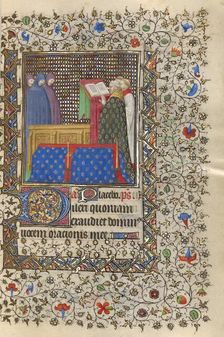 Placebo. ps
Dilexi quoniam
exaudiet domin
uocem orationis mee